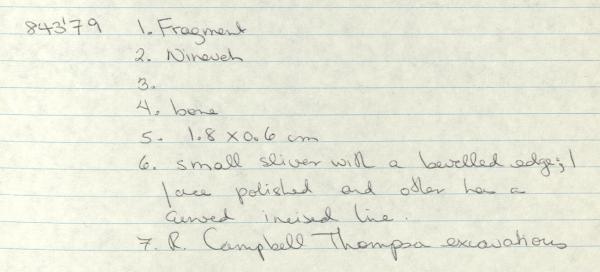 843'79 1. Fragment
2. Nineveh
3.
4. bone
5. 1.8 x 0.6 cm
6. small sliver with a bevelled edge; 1
face polished and other has a
curved incised line.
7. R. Campbell Thompson excavations